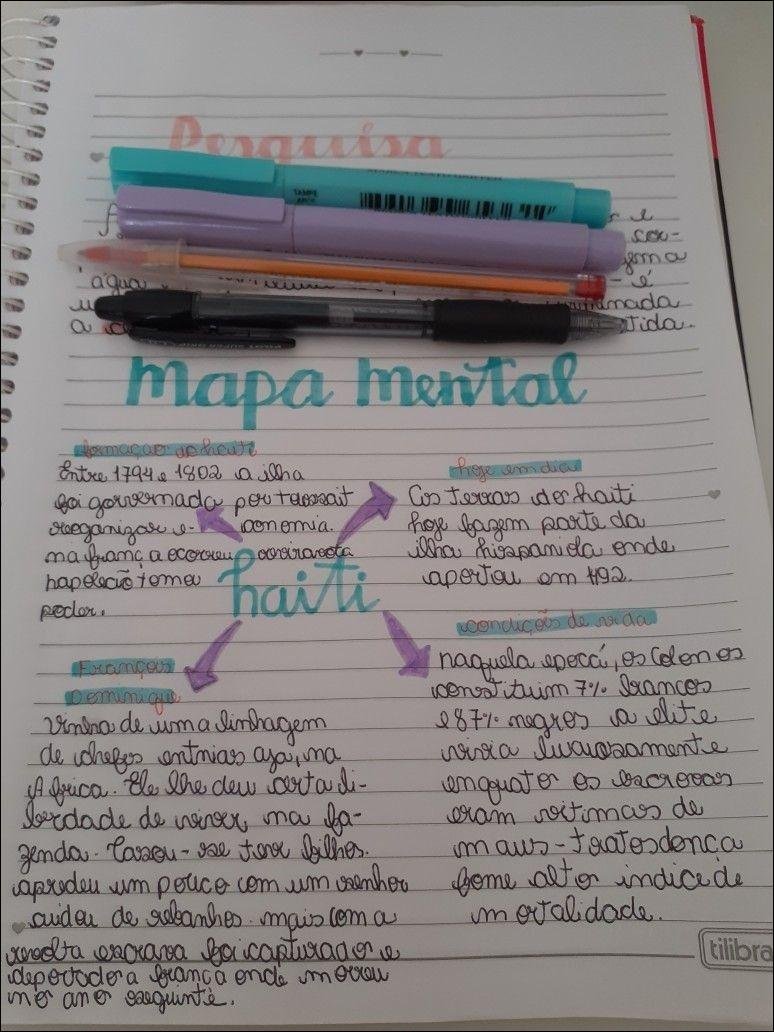 Pesquisa
e
cor-
água
é
a
tida.
mapa mental
formação do haiti
Entre 1794 e 1802 a ilha
foi governada por tussait
reoganizar e- conomia.
na frança ocorreu
napoleão tomou
poder.
hoje em dia
as terras do haiti
hoje fazem parte da
ilha hispanida onde
aportou em 1492.
haiti
condições de vida
naquela epocá, os colonos
constituim 7% brancos
e 87% negros a elite
vivia luxuosamente
enquator os escravas
eram vitimas de
maus-tratos doença
fome altos indice de
mortalidade.
François
Dominique
vinha de uma linhagem
de chefes
Africa. Ele lhe deu certa li-
berdade de viver na fa-
zenda. Casou-se teve filhos.
apredeu um pouco com um senhor
cuidou de rebanhos. mais com a
revolta escrava foi capturador e
deportado a frança onde morreu
no ano seguinte.
tilibra